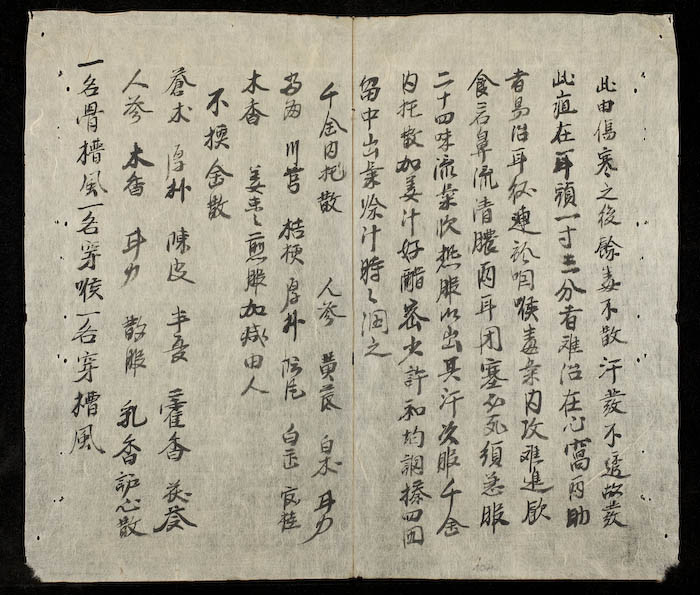 此由傷寒之後餘毒不散汗發不透故發
此疽在耳頭一寸三分者难治在心窩內助
者易治耳後連於咽喉毒氣內攻难進飲
食若鼻流清膿两耳闭塞必死須急服
二十四味流氣飲热服以出其汗次服千金
内托散加姜汁好醋蜜少許和均調搽四囬
留中出氣涂汁時々润之
千金内托散 人參 黃芪 白朮
川芎 桔梗 厚朴 防风 白芷 官桂
木香 姜枣煎服加减由人
不換金散
蒼朮 厚朴 陳皮 半夏 藿香 茯苓
人參 木香 散服 乳香护心散
一名骨槽風一名穿喉一名穿槽風